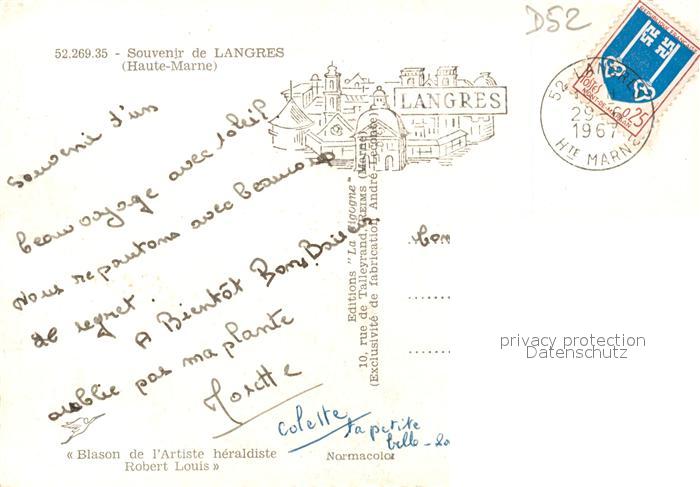 D52
52.269.35 - Souvenir de LANGRES
(Haute-Marne)
LANGRES
REPUBLIQUE FRANÇAISE
Postes
0,25
MONT-DE-MARSAN
52 LANGRES
29-
1967
HTE MARNE
Souvenir d'un
beau voyage avec soleil
Nous repartons avec beaucoup
de regret.
A Bientôt Bons Baisers
oublie pas ma plante
Colette
la petite
belle-
Editions "La Cigogne"
10, rue de Talleyrand, REIMS (Marne)
(Exclusivité de fabrication André Leconte)
privacy protection
Datenschutz
« Blason de l'Artiste héraldiste
Robert Louis »
Normacolor